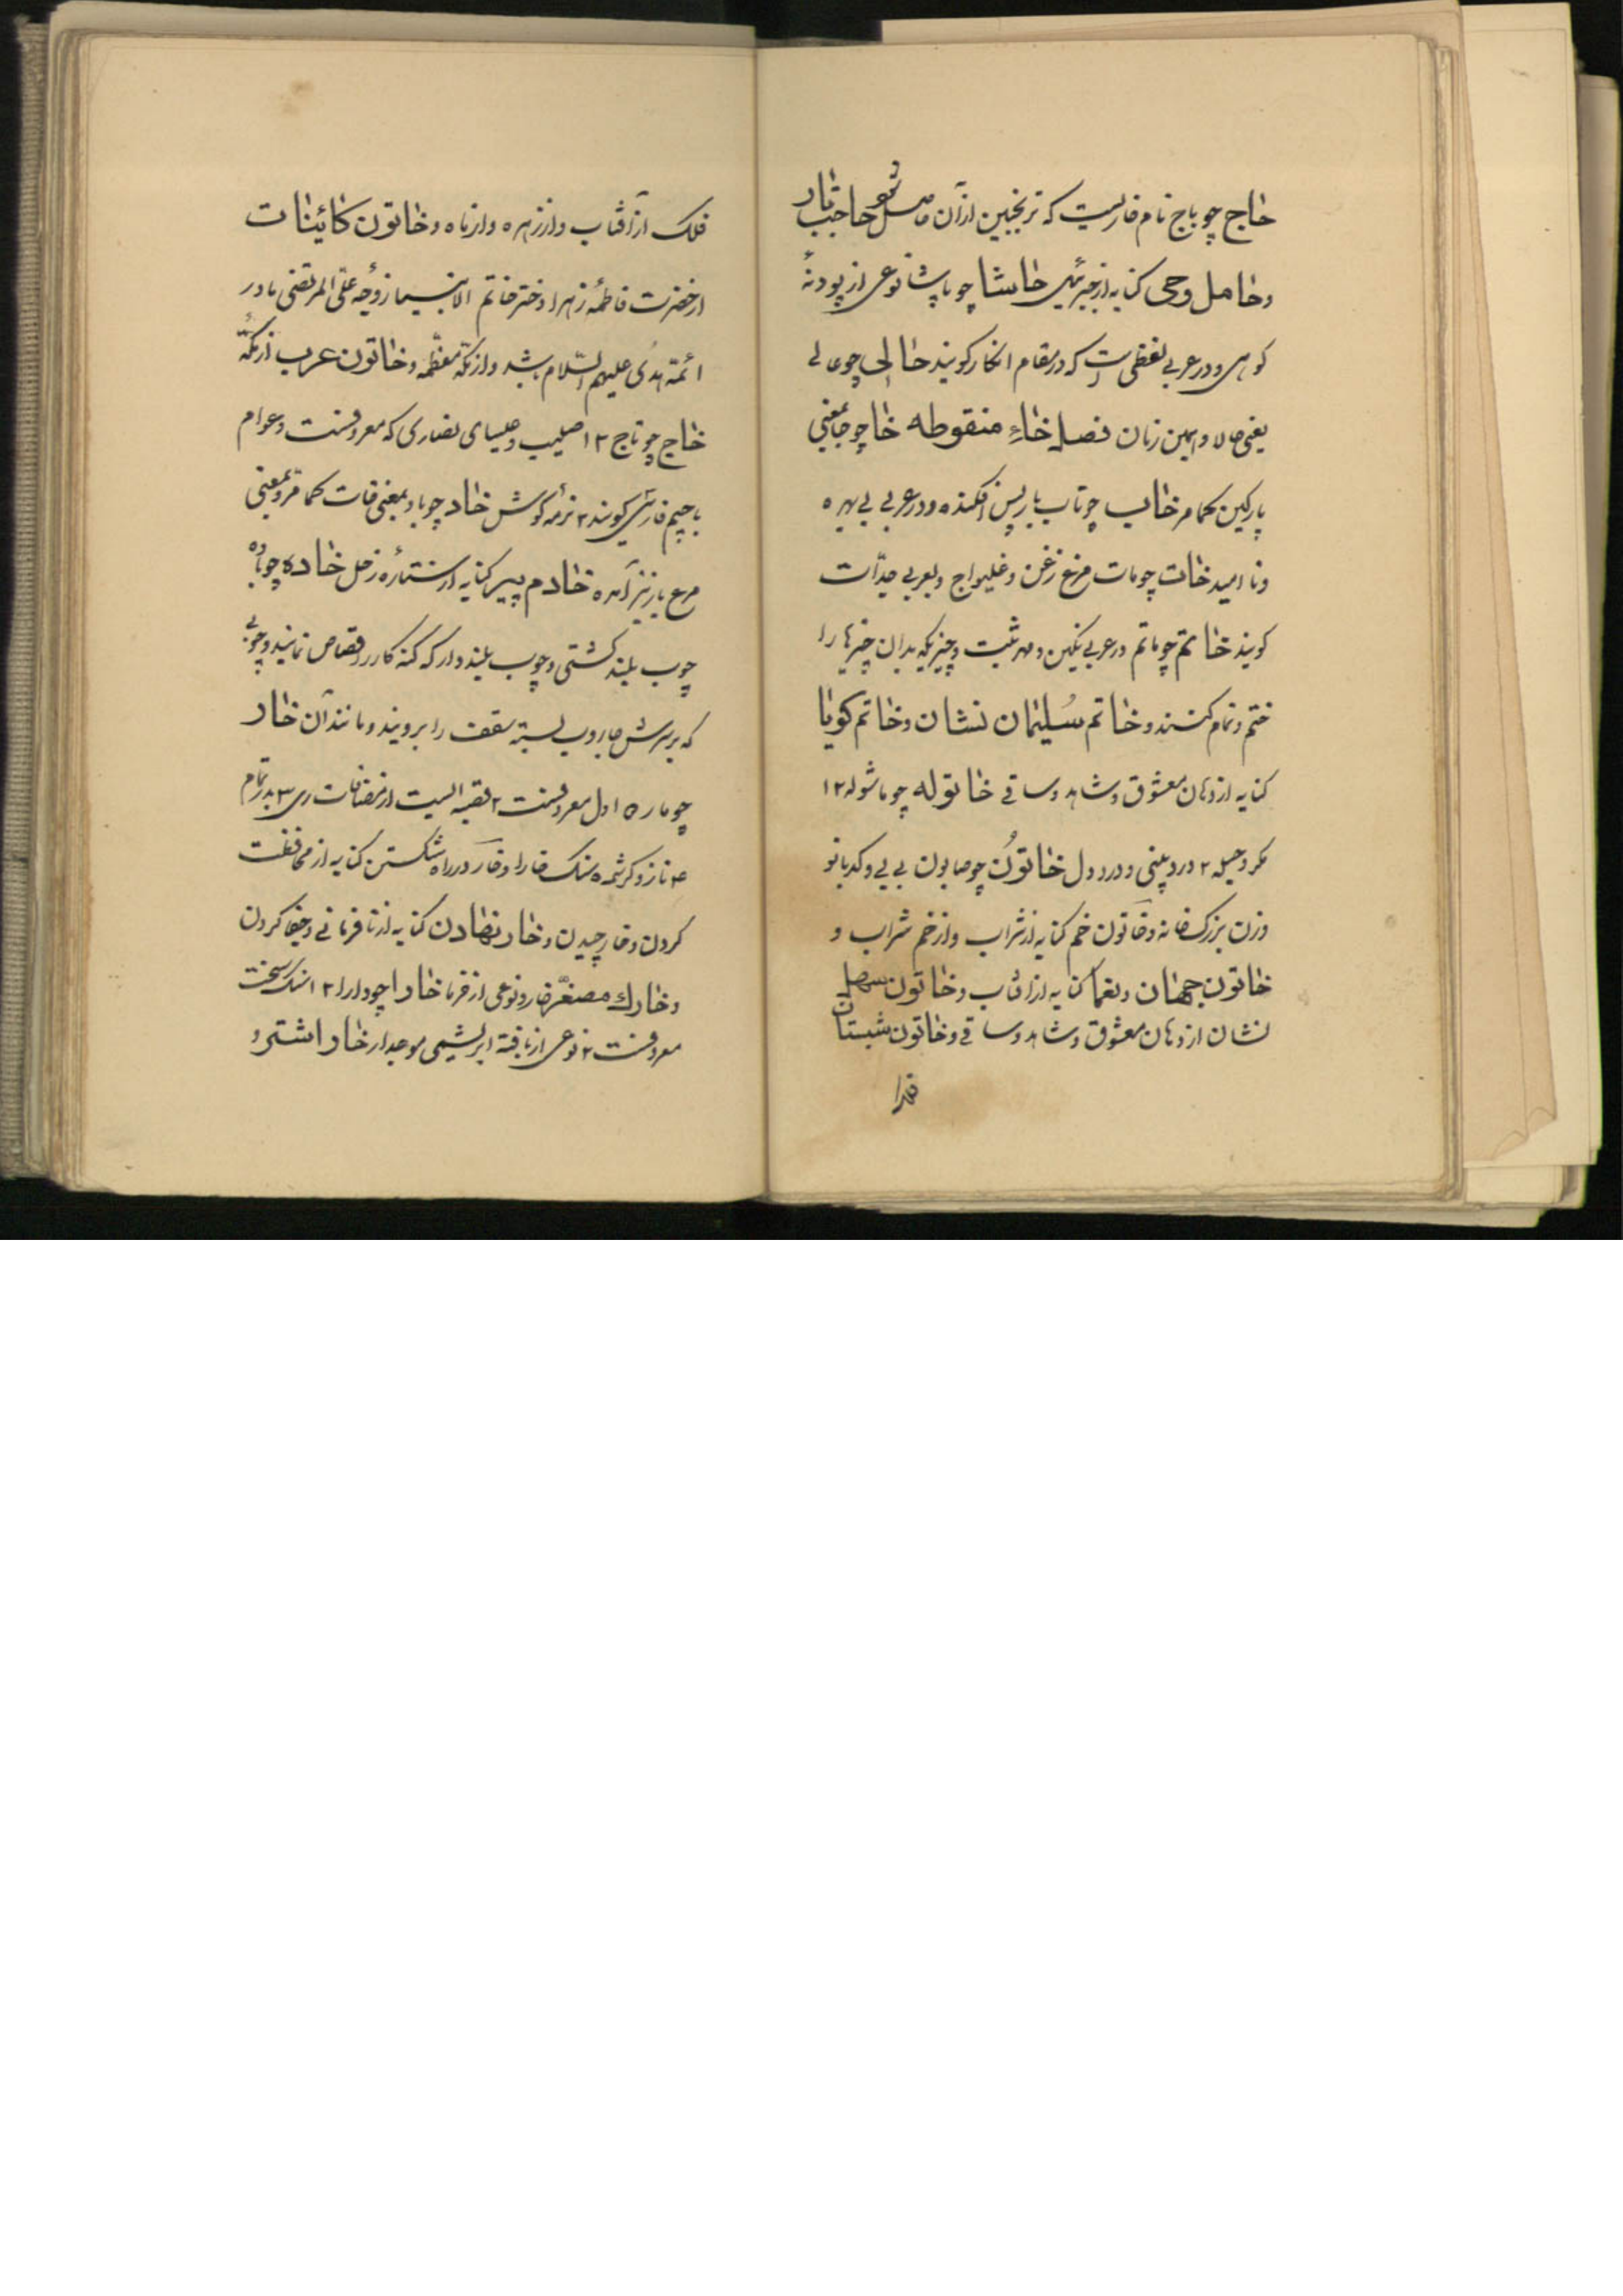 حاج چو باج نام خاریست که ترنجبین از آن حاصل شود حاجب بار
و حامل وحی کنایه از جبرئیل حاشا چو پاشا نوعی از پودنهٔ
کوهی و در عربی لفظی است که در مقام انکار کویند حالی چو عالی
یعنی حالا و همین زمان فصل خاءِ منقوطه خا چو جا بمعنی
پارکین کما مر خاب چو تاب باز پس افکنده و در عربی بی بهره
و نا امید خات چو مات مرغ زغن و غلیواج و بعربی حدأت
کویند خاتم چو ماتم در عربی نکین و مهر ثبت و چیزیکه بدان چیزها را
ختم و تمام کنند و خاتم سُلیمان نشان و خاتم کویا
کنایه از دهان معشوق و شاهد و ساقی خاتوله چو ماشوله ۱۲
مکر و حیله ۲ درد بینی و درد دل خاتوُن چو صابون بی بی و کدبانو
و زن بزرک خانه و خاتون خم کنایه از شراب و از خم شراب و
خاتون جهان و یغما کنایه از آفتاب و خاتون سهل
نشان از دهان معشوق و شاهد و ساقی و خاتون شبستان
فلک از آفتاب و از زهره و از ماه و خاتون کائینات
از حضرت فاطمهٔ زهرا دختر خاتم الانبیسا زوجهٔ علی المرتضی مادر
ائمهٔ هدی علیهم السّلام باشد و از مکهٔ معظّمه و خاتون عرب از مکهّٔ
خاج چو تاج ۱۲ صلیب و چلیپای نصاری که معروفست و عوام
با جیم فارسی کویند ۲ نرمهٔ کوش خاد چو باد بمعنی خات کما مر و بمعنی
مرغ باز نیز آمده خادم پیر کنایه از ستارهٔ زحل خاده چو باده
چوب بلند کشتی و چوب بلند دار که کنه کار را قصاص نمایند و چوبی
که بر سرش جاروب بسته سقف را بروبند و مانند آن خار
چو مار ۵ اول معروفست ۲ قصبه ایست از مضافات ری ۳ بدر تمام
۴ ناز و کرشمه ۵ سنک خارا و خار در راه شکستن کنایه از محافظت
کردن و خار چیدن و خار نهادن کنایه از نافرمانی و جفا کردن
و خارك مصغّر خار و نوعی از خرما خارا چو دارا ۱۲ سنک سخت
معروفست ۲ نوعی از بافتهٔ ابریشمی موجدار خار اشتر و